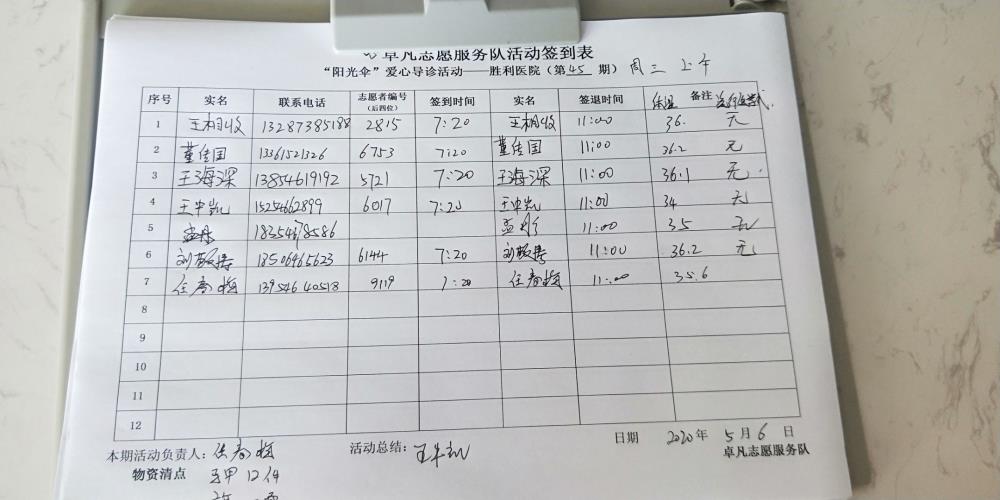 卓凡志愿服务队活动签到表
“阳光伞”爱心导诊活动——胜利医院（第45期）周三 上午
序号 实名 联系电话 志愿者编号（后四位） 签到时间 实名 签退时间 体温 备注
1 王相收 13287385188 2815 7:20 王相收 11:00 36. 无
2 董传国 13361521326 6753 7:20 董传国 11:00 36.2 无
3 王海深 13854619192 5721 7:20 王海深 11:00 36.1 无
4 王中凯 15254662899 6017 7:20 王中凯 11:00 34 无
5 孟彤 18354678586 孟彤 11:00 35 无
6 18506465623 6144 7:20 11:00 36.2 无
7 任春梅 13954640518 9119 7:20 任春梅 11:00 35.6
8
9
10
11
12
本期活动负责人：任春梅 活动总结： 日期 2020年 5月6日
物资清点 马甲12件 卓凡志愿服务队